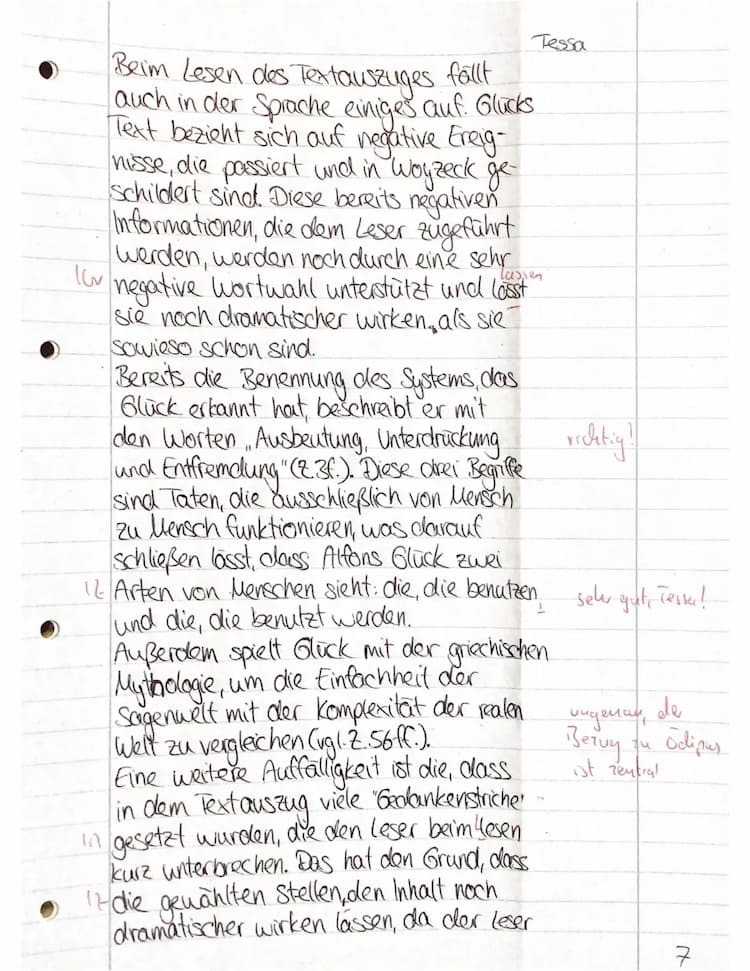 Tessa
Beim Lesen des Textauszuges fällt
auch in der Sprache einiges auf. Glücks
Text bezieht sich auf negative Ereig-
nisse, die passiert und in Woyzeck ge-
schildert sind. Diese bereits negativen
Informationen, die dem Leser zugeführt
werden, werden noch durch eine sehr
lassen
negative Wortwahl unterstützt und lässt
sie noch dramatischer wirken, als sie
sowieso schon sind.
Bereits die Benennung des Systems, das
Glück erkannt hat, beschreibt er mit
den Worten „Ausbeutung, Unterdrückung richtig!
und Entfremdung" (Z. 3f.). Diese drei Begriffe
sind Taten, die ausschließlich von Mensch
zu Mensch funktionieren, was darauf
schließen lässt, dass Alfons Glück zwei
Arten von Menschen sieht: die, die benutzen, sehr gut, Tessa!
und die, die benutzt werden.
Außerdem spielt Glück mit der griechischen
Mythologie, um die Einfachheit der
Sagenwelt mit der Komplexität der realen ungenau, der
Welt zu vergleichen (vgl. Z. 56 ff.). Bezug zu Ödipus
Eine weitere Auffälligkeit ist die, dass ist zentral
in dem Textauszug viele "Gedankenstriche"
gesetzt wurden, die den Leser beim Lesen
kurz unterbrechen. Das hat den Grund, dass
die gewählten Stellen, den Inhalt noch
dramatischer wirken lassen, da der Leser
7